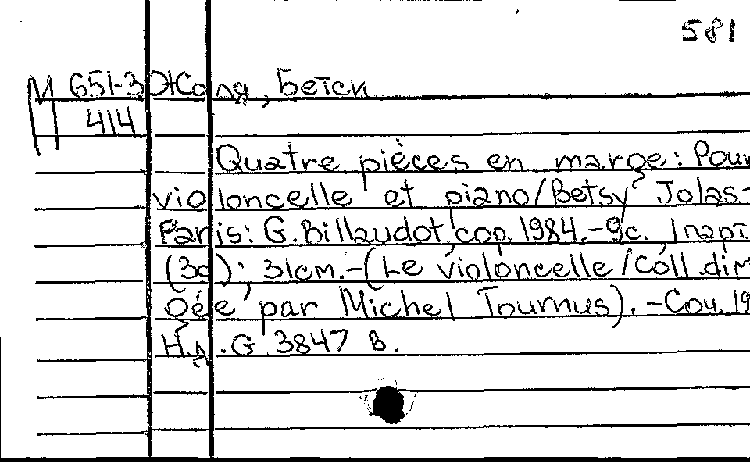 581
М 651-3 Жола, Бетси
414
Quatre pièces en marge: Pour
violoncelle et piano/Betsy Jolas.-
Paris: G. Billaudot, cop. 1984.-9с.
(3с); 31см.-(Le violoncelle/Coll. diri
gée par Michel Tournus).-Соч. 19
Н.д. G 3847 B.